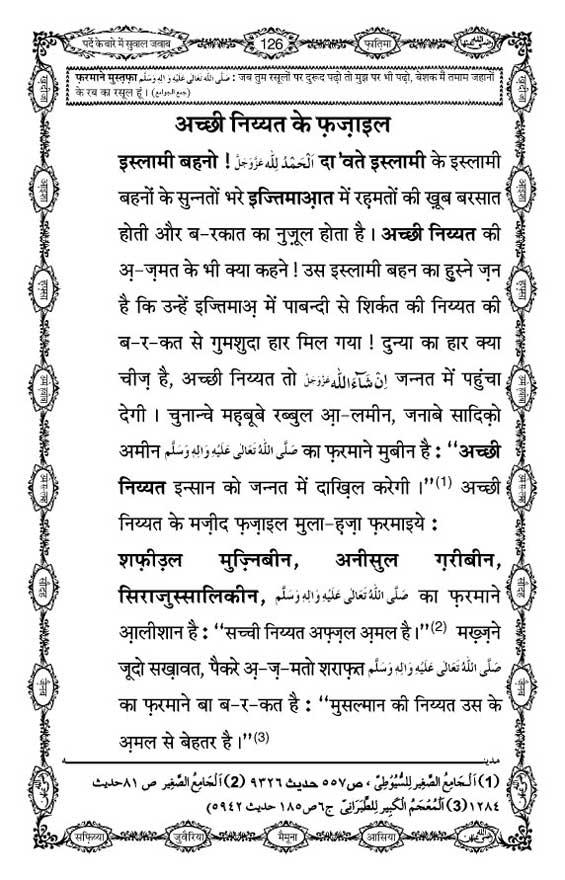 पर्दे के बारे में सुवाल जवाब 126 फ़ातिमा
फ़रमाने मुस्तफ़ा صَلَّى اللهُ تَعَالٰى عَلَيْهِ وَاٰلِهٖ وَسَلَّم : जब तुम रसूलों पर दुरूद पढ़ो तो मुझ पर भी पढ़ो, बेशक मैं तमाम जहानों
के रब का रसूल हूं । (جمع الجوامع)
अच्छी निय्यत के फ़ज़ाइल
इस्लामी बहनो ! اَلْحَمْدُ لِلّٰه عَزَّوَجَلَّ दा'वते इस्लामी के इस्लामी
बहनों के सुन्नतों भरे इज्तिमाआ़त में रहमतों की ख़ूब बरसात
होती और ब-रकात का नुज़ूल होता है । अच्छी निय्यत की
अ़-ज़मत के भी क्या कहने ! उस इस्लामी बहन का हुस्ने ज़न
है कि उन्हें इज्तिमाअ़ में पाबन्दी से शिर्कत की निय्यत की
ब-र-कत से गुमशुदा हार मिल गया ! दुन्या का हार क्या
चीज़ है, अच्छी निय्यत तो اِنْ شَآءَ اللّٰه عَزَّوَجَلَّ जन्नत में पहुंचा
देगी । चुनान्चे महबूबे रब्बुल आ़-लमीन, जनाबे सादिक़ो
अमीन صَلَّى اللهُ تَعَالٰى عَلَيْهِ وَاٰلِهٖ وَسَلَّم का फ़रमाने मुबीन है : ‘‘अच्छी
निय्यत इन्सान को जन्नत में दाख़िल करेगी ।’’(1) अच्छी
निय्यत के मज़ीद फ़ज़ाइल मुला-ह़ज़ा फ़रमाइये :
शफ़ीउ़ल मुज़्निबीन, अनीसुल ग़रीबीन,
सिराजुस्सालिकीन, صَلَّى اللهُ تَعَالٰى عَلَيْهِ وَاٰلِهٖ وَسَلَّم का फ़रमाने
आ़लीशान है : ‘‘सच्ची निय्यत अफ़्ज़ल अ़मल है ।’’(2) मख़्ज़ने
जूदो सख़ावत, पैकरे अ़-ज़-मतो शराफ़त صَلَّى اللهُ تَعَالٰى عَلَيْهِ وَاٰلِهٖ وَسَلَّم
का फ़रमाने बा ब-र-कत है : ‘‘मुसल्मान की निय्यत उस के
अ़मल से बेहतर है ।’’(3)
مدینہ
(1) اَلْجَامِعُ الصَّغِیر لِلسُّیُوطِیّ، ص۵۵۷ حدیث ۹۳۲۶ (2) اَلْجَامِعُ الصَّغِیر ص ۸۱ حدیث
۱۲۸۴ (3) اَلْمُعْجَمُ الْکَبِیر لِلطَّبَرَانِیّ ج۶ ص۱۸۵ حدیث ۵۹۴۲)
सफ़िय्या जुवैरिया मैमूना आसिया